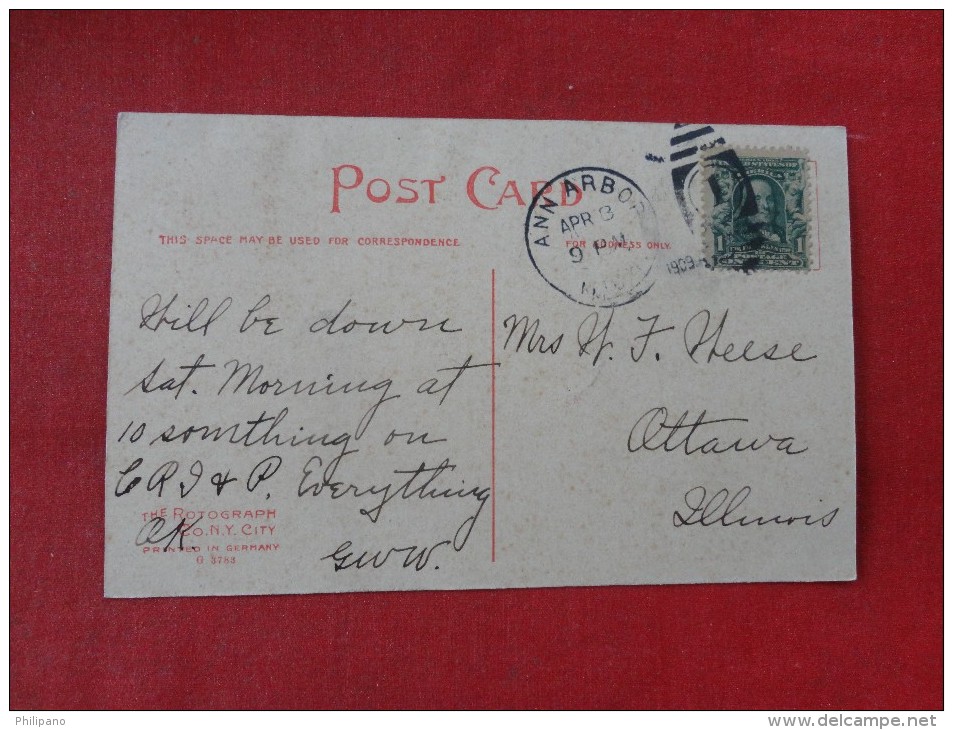 POST CARD
THIS SPACE MAY BE USED FOR CORRESPONDENCE.
FOR ADDRESS ONLY.
ANN ARBOR
APR 8
9 PM
1909
1 1
POSTAGE
ONE CENT
Will be down
Sat. Morning at
10 somthing on
C R I & P. Everything
OK.
GWW.
Mrs W. F. Weese
Ottawa
Illinois
THE ROTOGRAPH
CO. N.Y. CITY
PRINTED IN GERMANY
G 3783
Philipano
www.delcampe.net